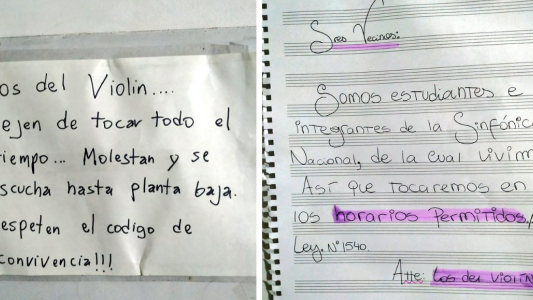 os del Violin....
ejen de tocar todo el
iempo... Molestan y se
scucha hasta planta baja.
espeten el codigo de
convivencia!!!
Sres Vecinos:
Somos estudiantes e
integrantes de la Sinfónic
Nacional, de la cual vivim
Así que tocaremos en
los horarios permitidos,
Ley. N° 1540.
Atte: Los del violin